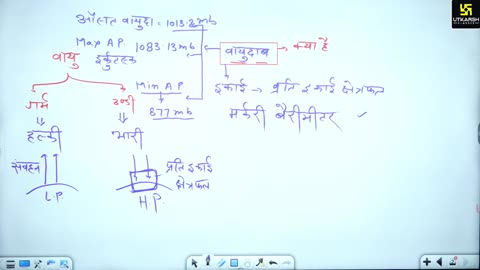 औसत वायुदाब = 1013.2mb
Max A.P. 1083.13mb
इर्कुटस्क
वायुदाब → क्या है
वायु
Min A.P
877mb
इकाई → प्रति इकाई क्षेत्रफल
मर्करी बैरोमीटर ✓
गर्म
ठण्डी
हल्की
भारी
संवहन
प्रति इकाई
क्षेत्रफल
L.P.
H.P
UTKARSH